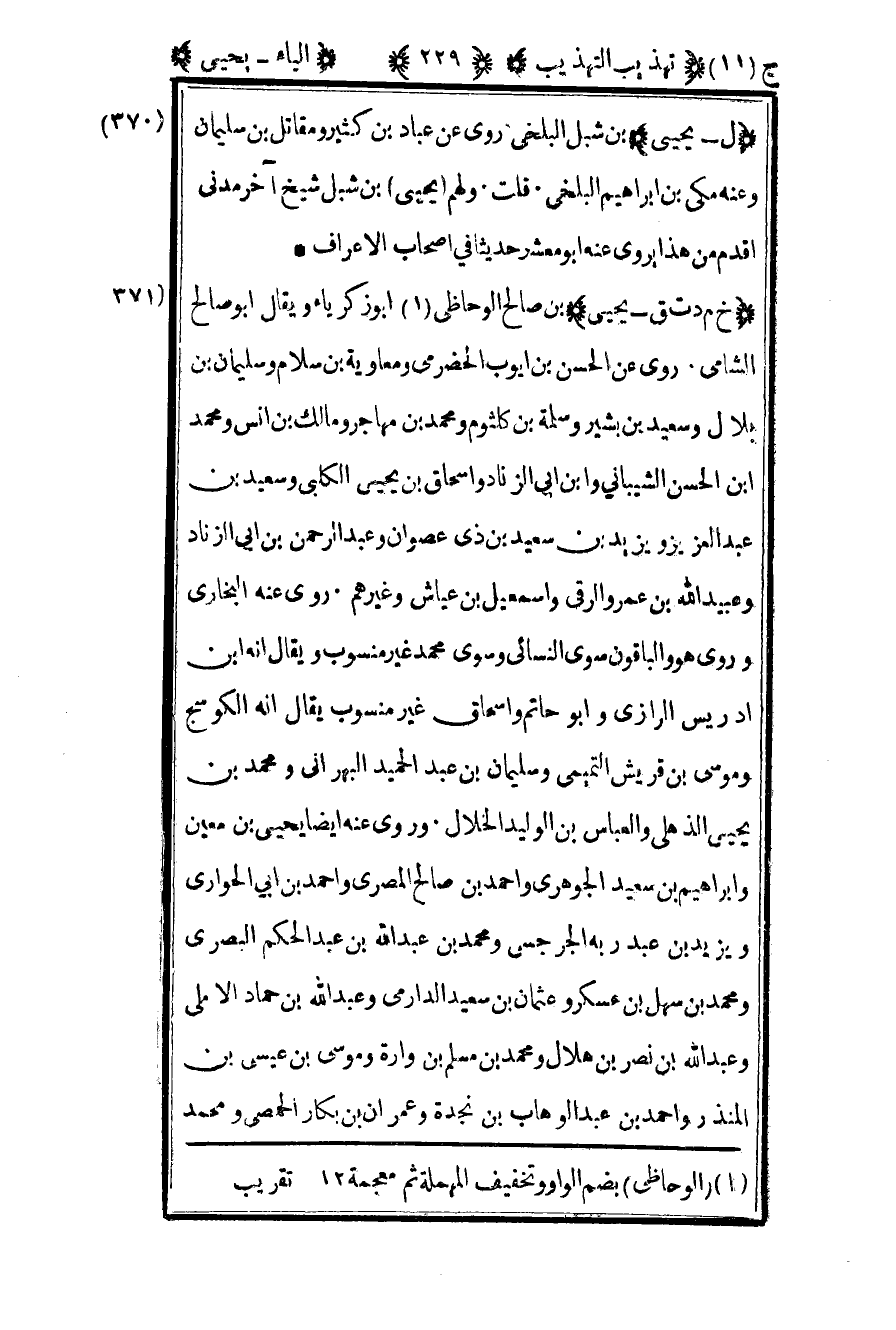 ج (١١) ﴿ تهذيب التهذيب ﴾ ﴿ ٢٢٩ ﴾ ﴿ الياء - يحيى ﴾
﴿ل - يحيى﴾ بن شبل البلخى روى عن عباد بن كثير ومقاتل بن سليمان (٣٧٠)
وعنه مكى بن ابراهيم البلخى . قلت . ولهم (يحيى) بن شبل شيخ آخر مدنى
اقدم من هذا يروى عنه ابو معشر حديثا فى اصحاب الاعراف .
﴿خ م د ت ق - يحيى﴾ بن صالح الوحاظى (١) ابو زكرياء ويقال ابو صالح (٣٧١
الشامى . روى عن الحسن بن ايوب الحضرمى ومعاوية بن سلام وسليمان بن
بلال وسعيد بن بشير وسلمة بن كلثوم ومحمد بن مهاجر ومالك بن انس ومحمد
ابن الحسن الشيباني وابن ابى الزناد واسحاق بن يحيى الكلبى وسعيد بن
عبد العزيز ويزيد بن سعيد بن ذى عصوان وعبد الرحمن بن ابى الزناد
وعبيد الله بن عمرو الرقى واسمعيل بن عياش وغيرهم . روى عنه البخارى
وروى هو والباقون سوى النسائى وسوى محمد غير منسوب ويقال انه ابن
ادريس الرازى وابو حاتم واسحاق غير منسوب يقال انه الكوسج
وموسى بن قريش التميمى وسليمان بن عبد الحميد البهرانى ومحمد بن
يحيى الذهلى والعباس بن الوليد الخلال . وروى عنه ايضا يحيى بن معين
وابراهيم بن سعيد الجوهرى واحمد بن صالح المصرى واحمد بن ابي الحوارى
ويزيد بن عبد ربه الجرجسى ومحمد بن عبد الله بن عبد الحكم البصرى
ومحمد بن سهل بن عسكر وعثمان بن سعيد الدارمى وعبد الله بن حماد الاملى
وعبد الله بن نصر بن هلال ومحمد بن مسلم بن وارة وموسى بن عيسى بن
المنذر واحمد بن عبد الوهاب بن نجدة وعمران بن بكار الحمصى ومحمد
(١) (الوحاظى) بضم الواو وتخفيف المهملة ثم معجمة ١٢ تقريب